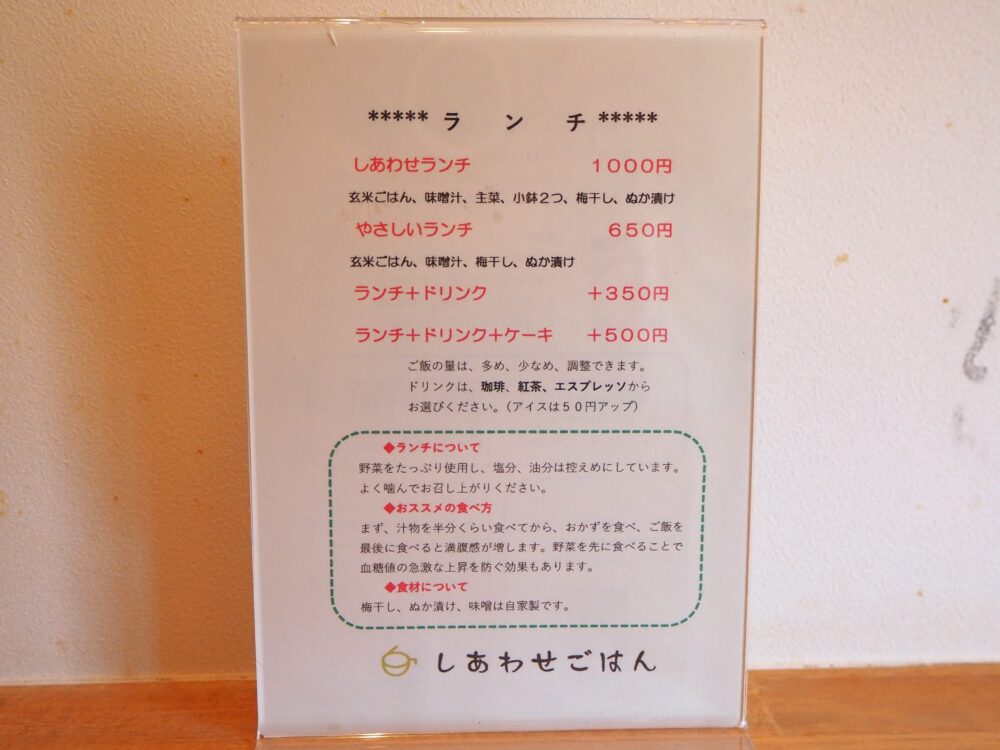 ***** ラ ン チ *****
しあわせランチ １０００円
玄米ごはん、味噌汁、主菜、小鉢２つ、梅干し、ぬか漬け
やさしいランチ ６５０円
玄米ごはん、味噌汁、梅干し、ぬか漬け
ランチ＋ドリンク ＋３５０円
ランチ＋ドリンク＋ケーキ ＋５００円
ご飯の量は、多め、少なめ、調整できます。
ドリンクは、珈琲、紅茶、エスプレッソから
お選びください。（アイスは５０円アップ）
◆ランチについて
野菜をたっぷり使用し、塩分、油分は控えめにしています。
よく噛んでお召し上がりください。
◆おススメの食べ方
まず、汁物を半分くらい食べてから、おかずを食べ、ご飯を
最後に食べると満腹感が増します。野菜を先に食べることで
血糖値の急激な上昇を防ぐ効果もあります。
◆食材について
梅干し、ぬか漬け、味噌は自家製です。
しあわせごはん